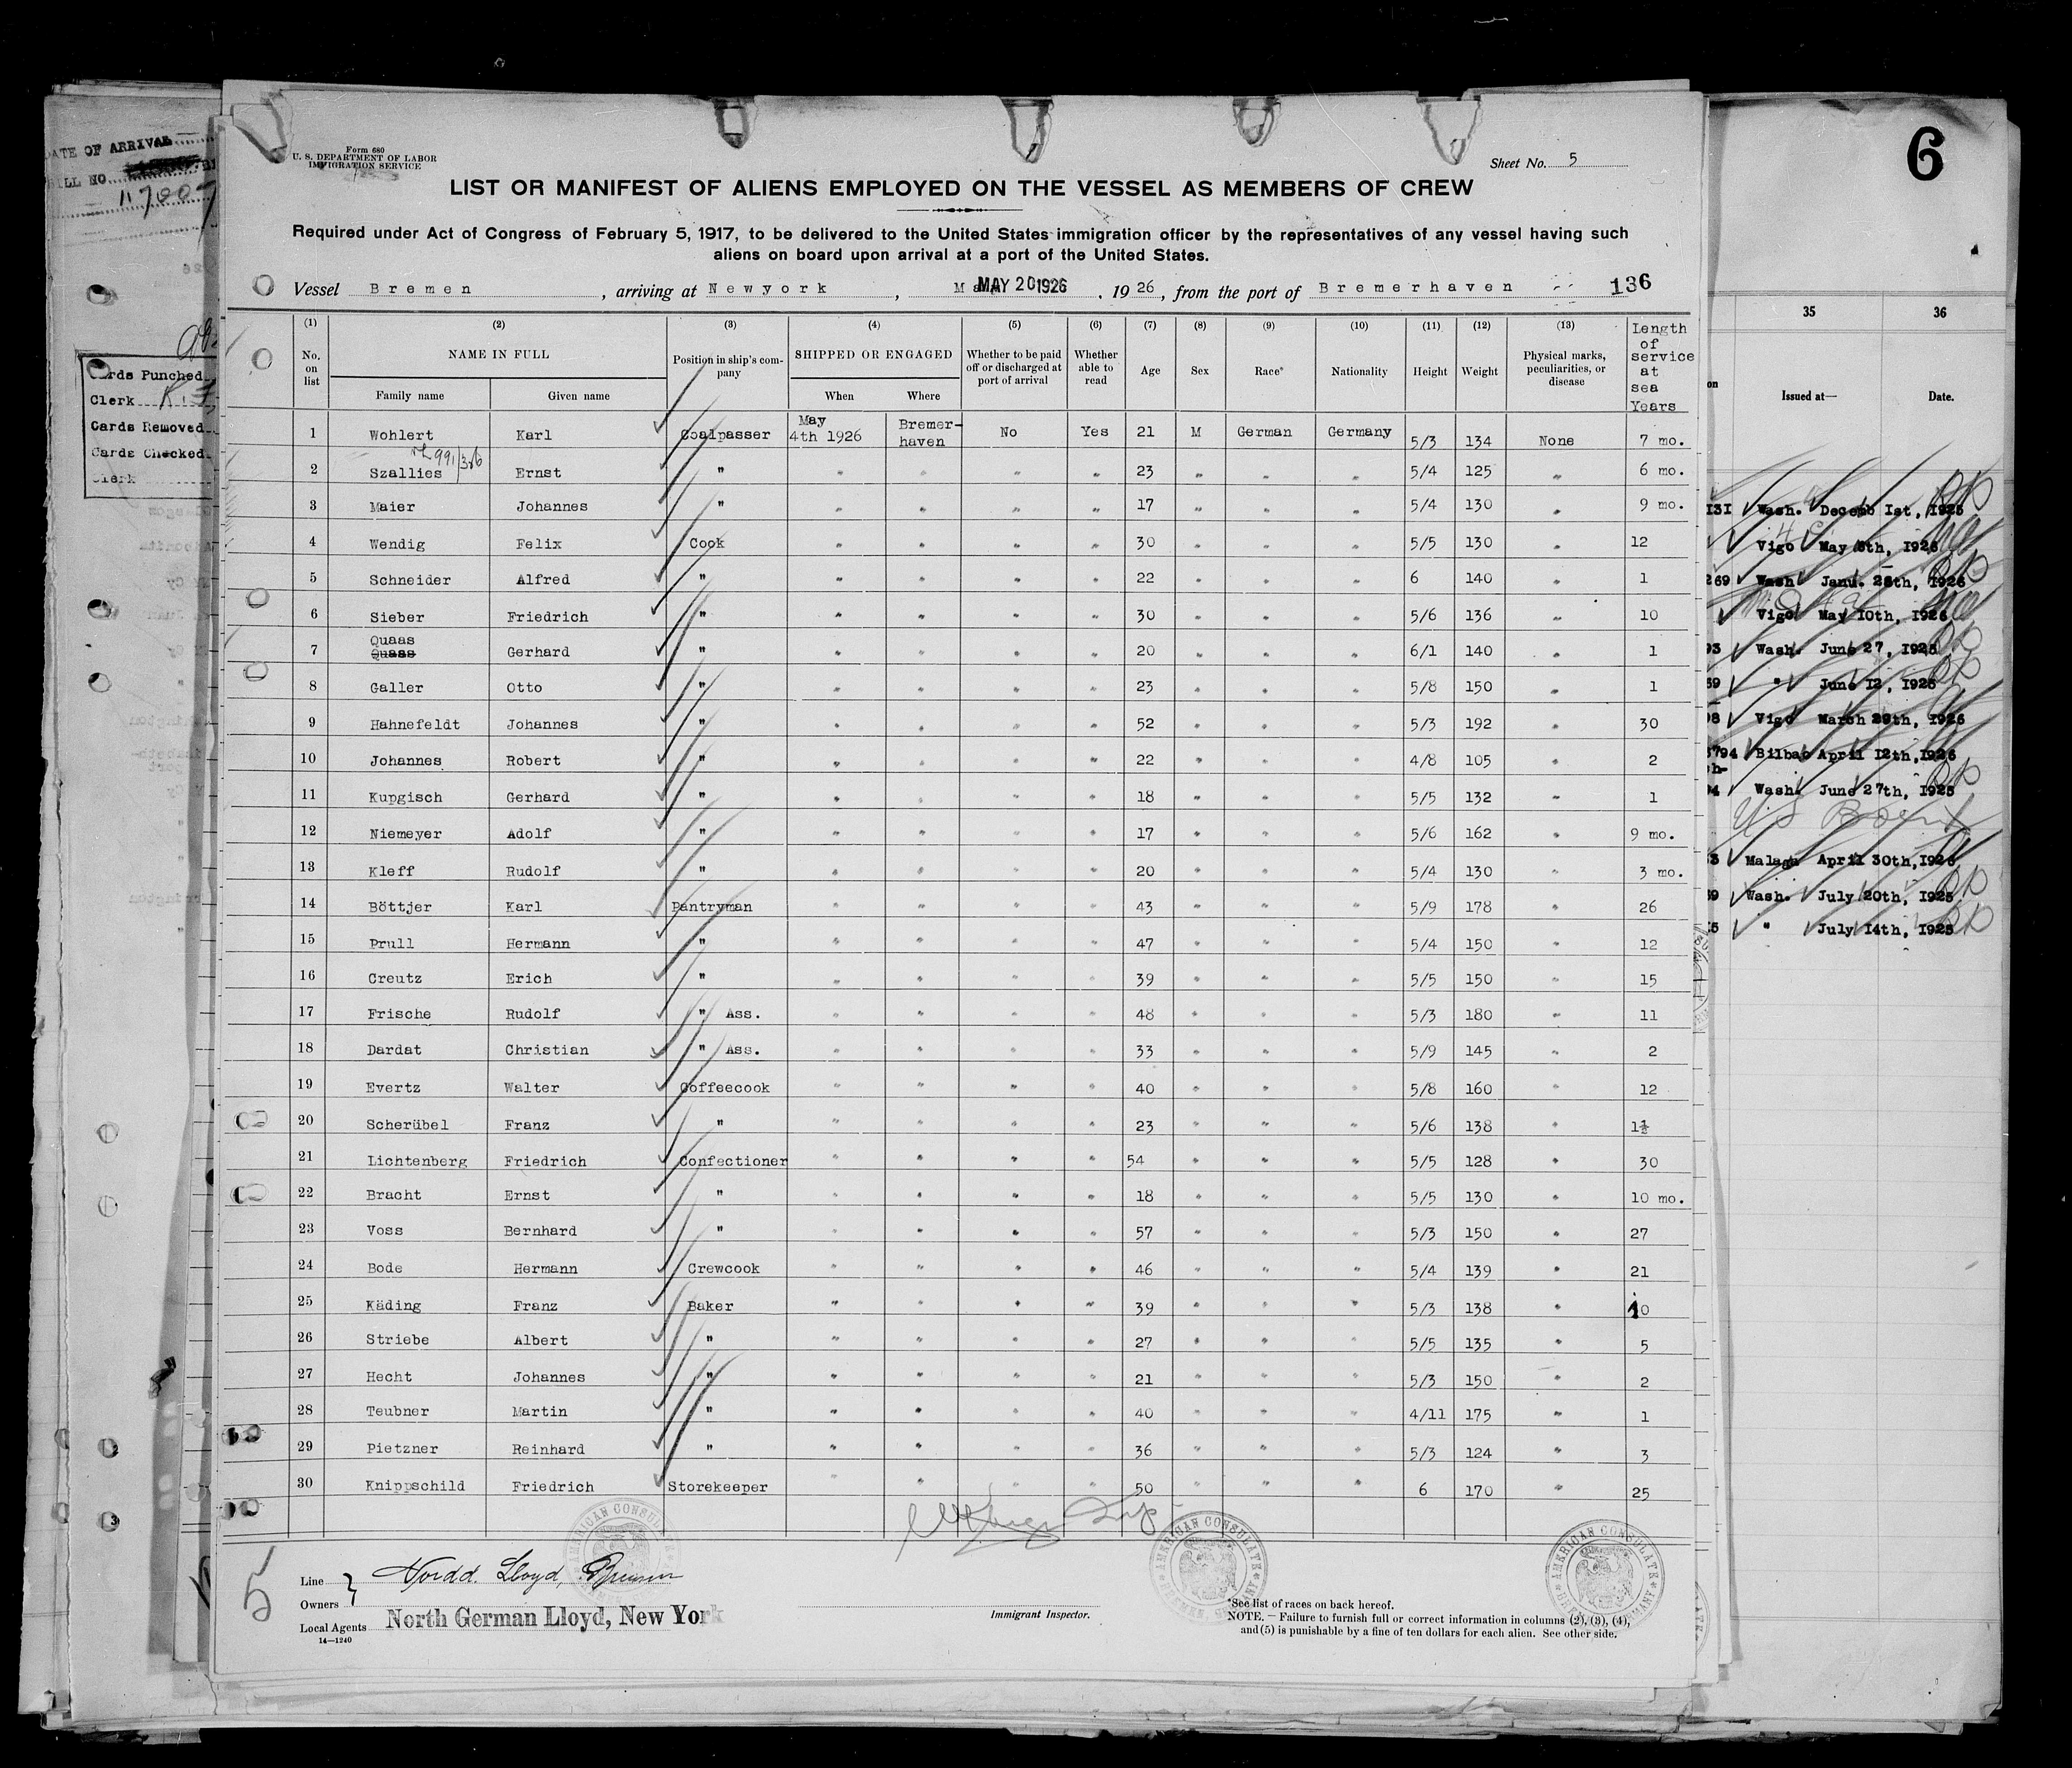 Form 680
U. S. DEPARTMENT OF LABOR
IMMIGRATION SERVICE
Sheet No. 5
6
LIST OR MANIFEST OF ALIENS EMPLOYED ON THE VESSEL AS MEMBERS OF CREW
Required under Act of Congress of February 5, 1917, to be delivered to the United States immigration officer by the representatives of any vessel having such
aliens on board upon arrival at a port of the United States.
Vessel Bremen, arriving at Newyork, MAY 20 1926, 1926, from the port of Bremerhaven 136
(1) (2) (3) (4) (5) (6) (7) (8) (9) (10) (11) (12) (13)
No. on list NAME IN FULL Family name Given name Position in ship's company SHIPPED OR ENGAGED When Where Whether to be paid off or discharged at port of arrival Whether able to read Age Sex Race* Nationality Height Weight Physical marks, peculiarities, or disease Length of service at sea Years
1 Wohlert Karl Coalpasser May 4th 1926 Bremer-haven No Yes 21 M German Germany 5/3 134 None 7 mo.
2 Szallies Ernst " " " " " 23 " " " 5/4 125 " 6 mo.
3 Maier Johannes " " " " " 17 " " " 5/4 130 " 9 mo.
4 Wendig Felix Cook " " " " 30 " " " 5/5 130 " 12
5 Schneider Alfred " " " " " 22 " " " 6 140 " 1
6 Sieber Friedrich " " " " " 30 " " " 5/6 136 " 10
Quaas
7 Quaas Gerhard " " " " " 20 " " " 6/1 140 " 1
8 Galler Otto " " " " " 23 " " " 5/8 150 " 1
9 Hahnefeldt Johannes " " " " " 52 " " " 5/3 192 " 30
10 Johannes Robert " " " " " 22 " " " 4/8 105 " 2
11 Kupgisch Gerhard " " " " " 18 " " " 5/5 132 " 1
12 Niemeyer Adolf " " " " " 17 " " " 5/6 162 " 9 mo.
13 Kleff Rudolf " " " " " 20 " " " 5/4 130 " 3 mo.
14 Böttjer Karl Pantryman " " " " 43 " " " 5/9 178 " 26
15 Prull Hermann " " " " " 47 " " " 5/4 150 " 12
16 Creutz Erich " " " " " 39 " " " 5/5 150 " 15
17 Frische Rudolf " Ass. " " " " 48 " " " 5/3 180 " 11
18 Dardat Christian " Ass. " " " " 33 " " " 5/9 145 " 2
19 Evertz Walter Coffeecook " " " " 40 " " " 5/8 160 " 12
20 Scherübel Franz " " " " " 23 " " " 5/6 138 " 1½
21 Lichtenberg Friedrich Confectioner " " " " 54 " " " 5/5 128 " 30
22 Bracht Ernst " " " " " 18 " " " 5/5 130 " 10 mo.
23 Voss Bernhard " " " " " 57 " " " 5/3 150 " 27
24 Bode Hermann Crewcook " " " " 46 " " " 5/4 139 " 21
25 Käding Franz Baker " " " " 39 " " " 5/3 138 " 10
26 Striebe Albert " " " " " 27 " " " 5/5 135 " 5
27 Hecht Johannes " " " " " 21 " " " 5/3 150 " 2
28 Teubner Martin " " " " " 40 " " " 4/11 175 " 1
29 Pietzner Reinhard " " " " " 36 " " " 5/3 124 " 3
30 Knippschild Friedrich Storekeeper " " " " 50 " " " 6 170 " 25
5
Line
Owners
Nordd. Lloyd, Bremen
Local Agents North German Lloyd, New York
14—1240
Immigrant Inspector.
AMERICAN CONSULATE
BREMEN, GERMANY
*See list of races on back hereof.
NOTE.—Failure to furnish full or correct information in columns (2), (3), (4),
and (5) is punishable by a fine of ten dollars for each alien. See other side.
DATE OF ARRIVAL
BILL NO.
Cards Punched
Clerk
Cards Removed
Cards Checked
Clerk
35 36
Issued at— Date.
131 Wash. Decemb 1st, 1925
Vigo May 8th, 1926
269 Wash Janu. 26th, 1926
Vigo May 10th, 1926
93 Wash. June 27, 1925
69 " June 12, 1925
98 Vigo March 29th, 1926
3794 Bilbao April 12th, 1926
94 Wash. June 27th, 1925
Malaga April 30th, 1926
59 Wash. July 20th, 1925
" July 14th, 1925